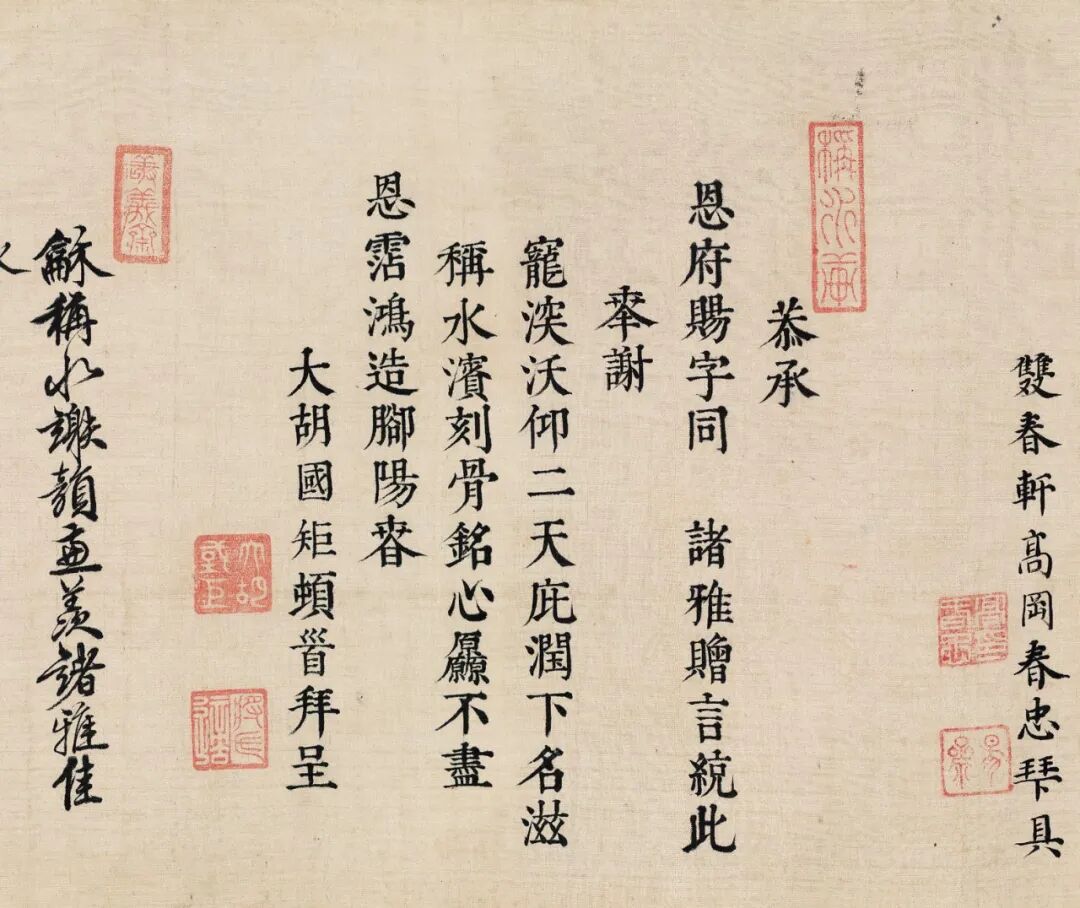 雙春軒高岡春忠琴具
恭承
恩府賜字同　諸雅贈言統此
奉謝
寵渥沃仰二天庇潤下名滋
稱水濱刻骨銘心願不盡
恩霑鴻造腳陽春
大胡國矩頓首拜呈
龢稱水謝韻并羨諸雅佳